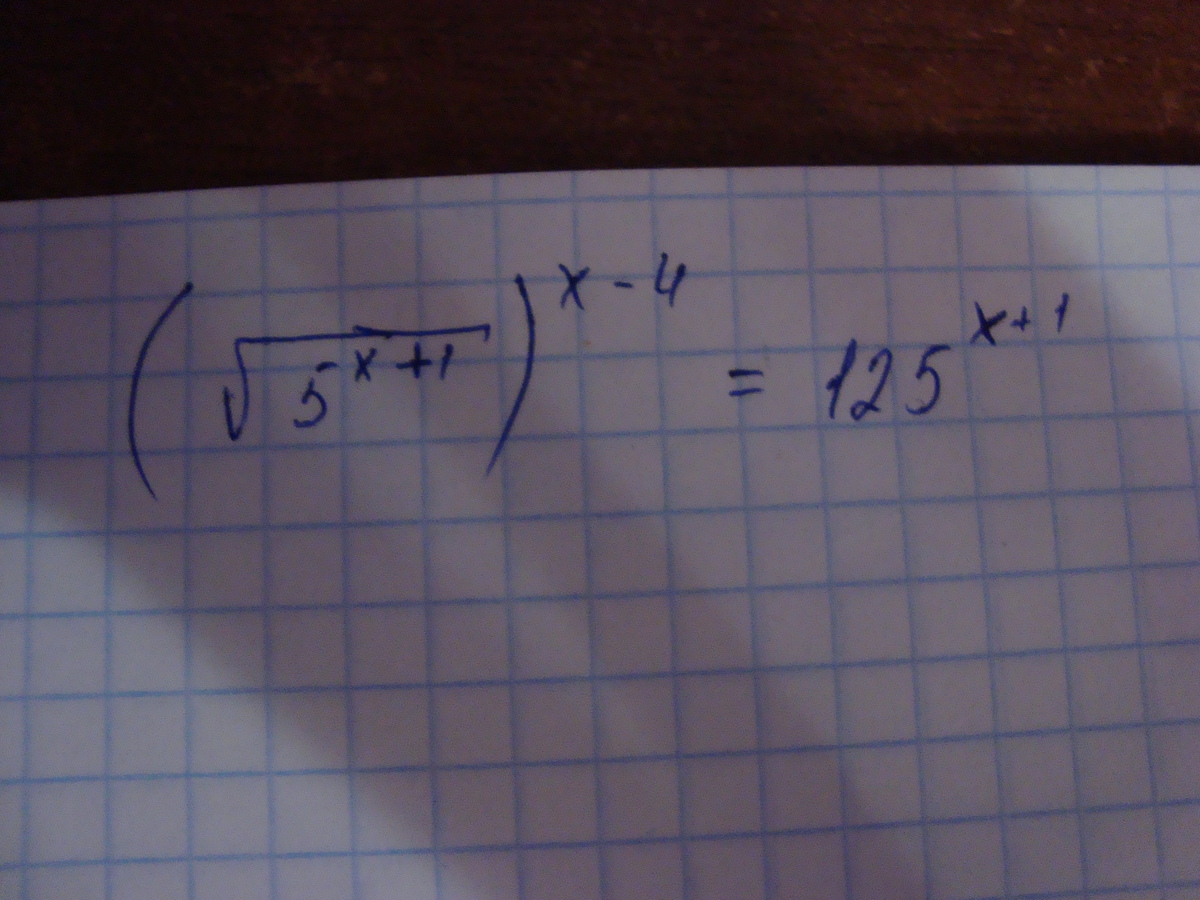 (√5^{x+1})^{x-4} = 125^{x+1}